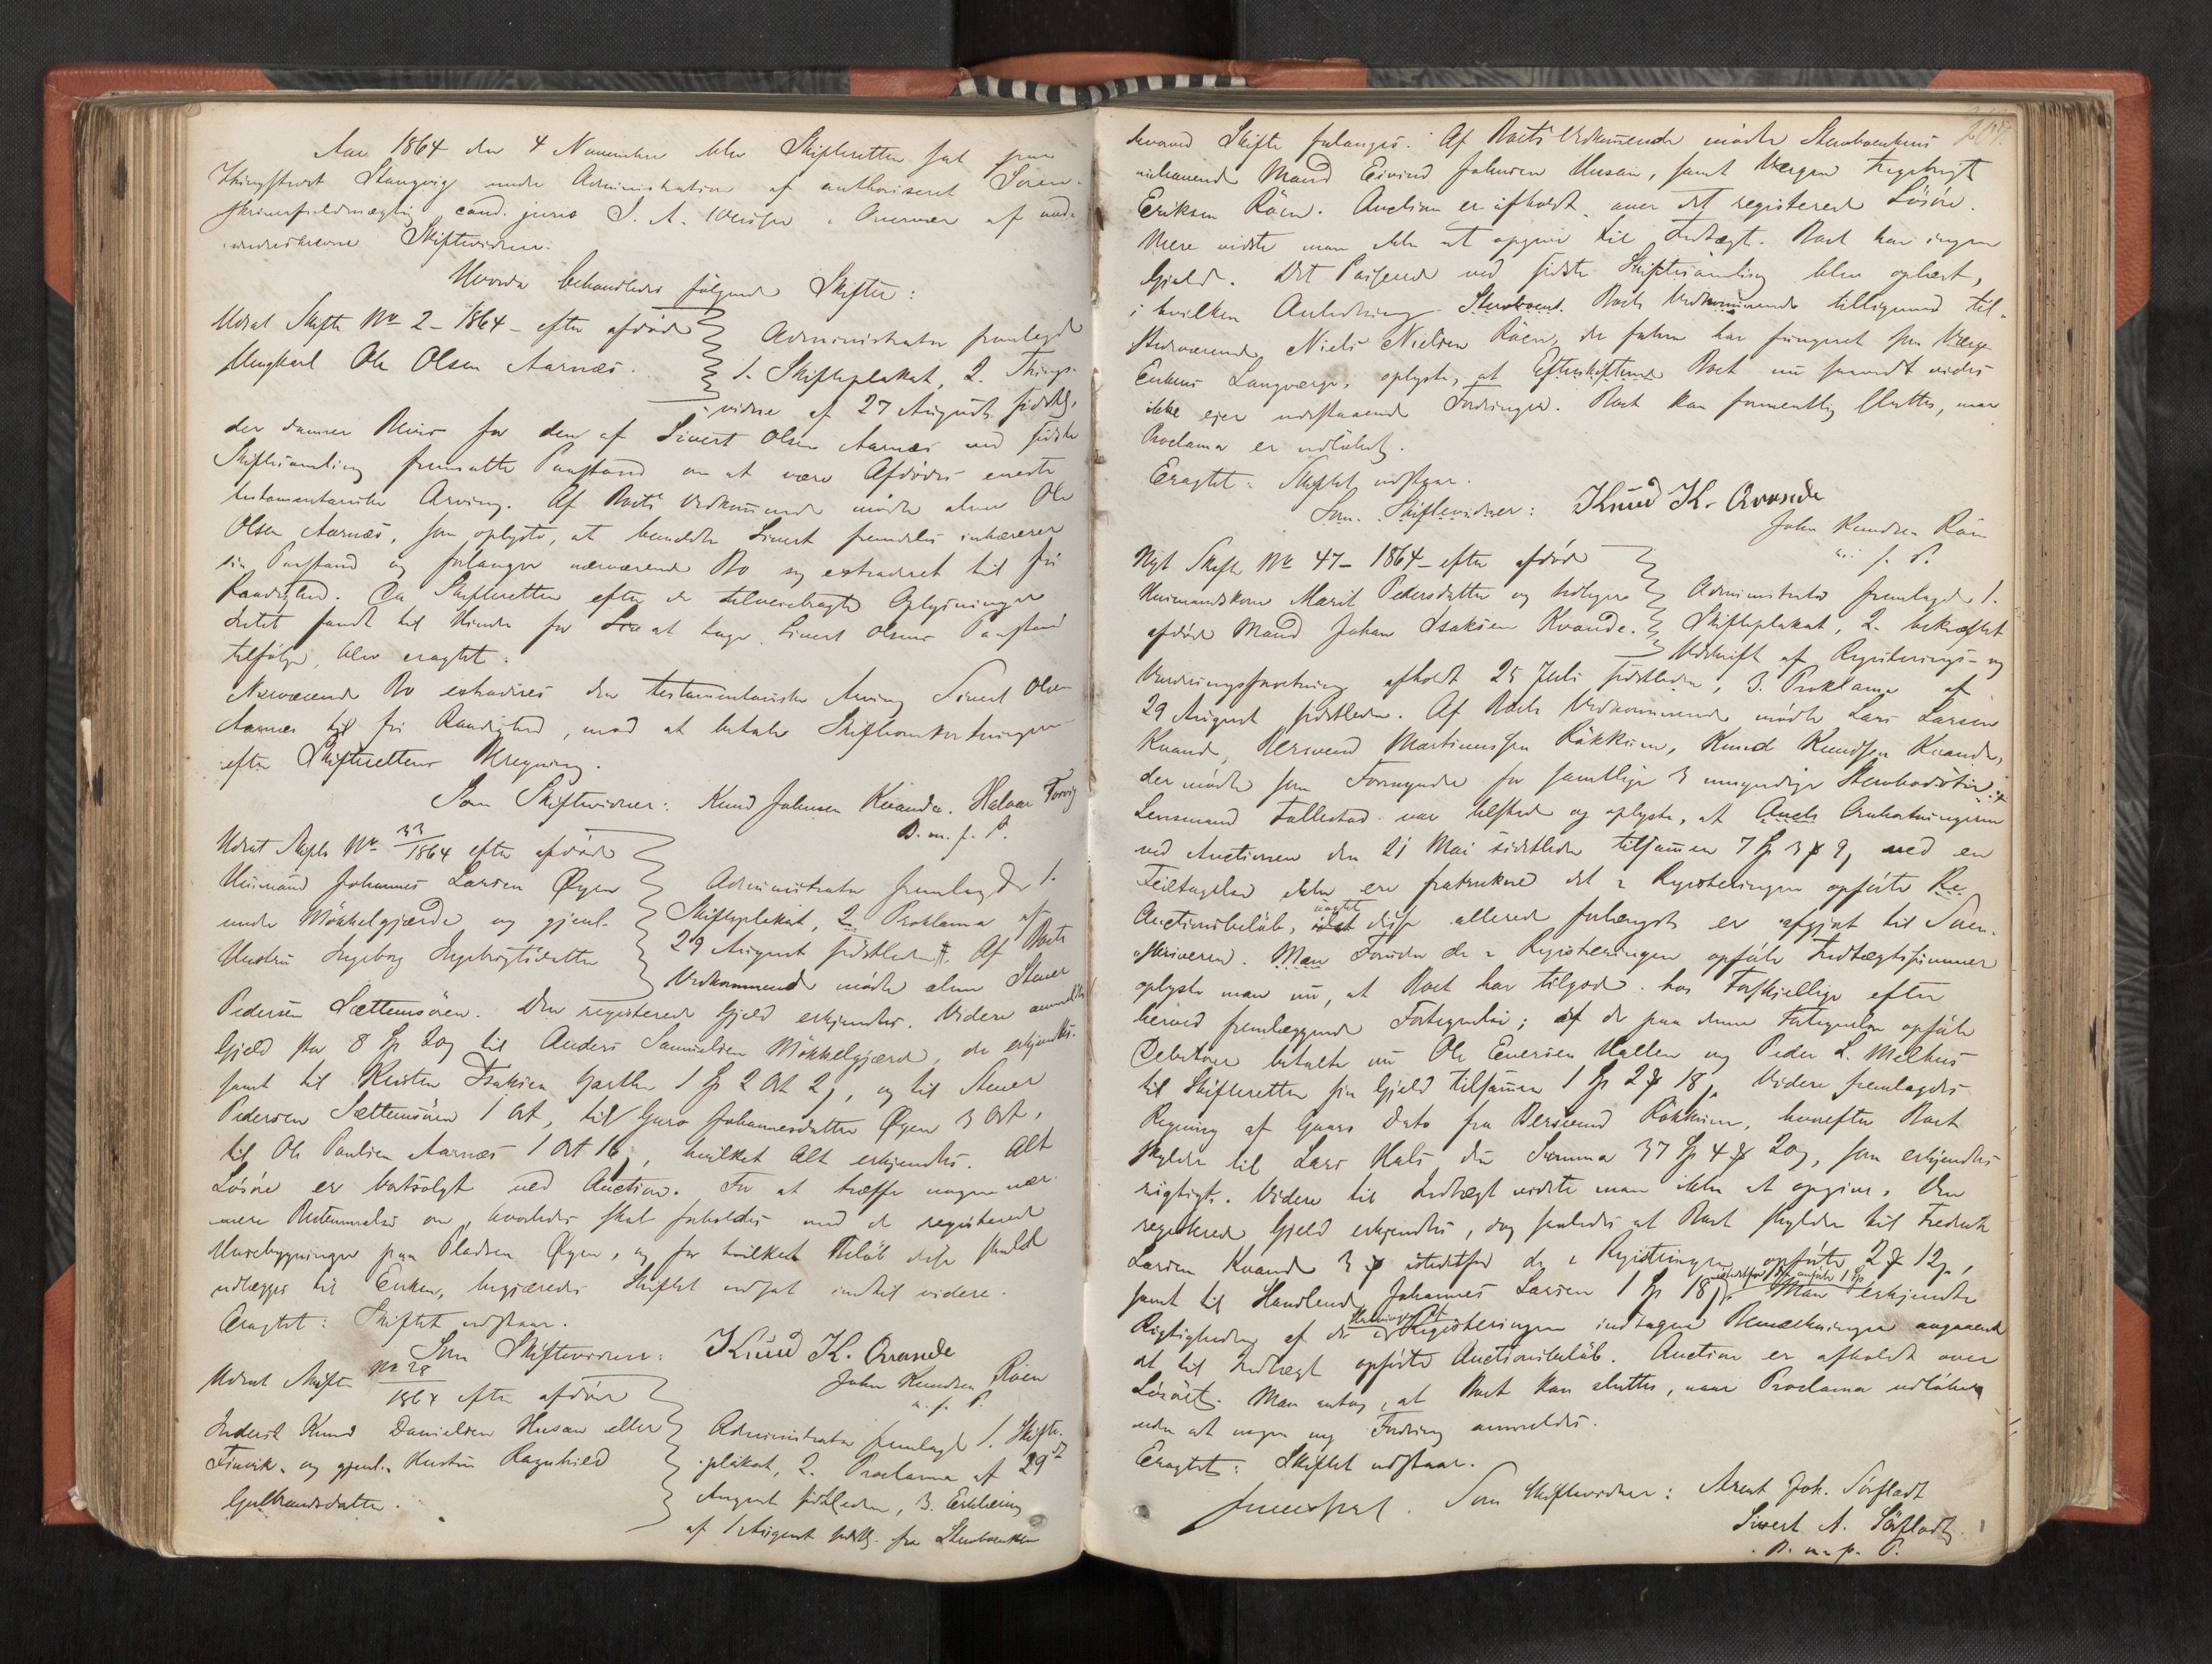 Aar 1864 den 4 November blev Skifteretten sat paa
Thingstuet Stangvig under Administration af authoriseret Soren-
skriverfuldmægtig cand. juris S. A. i Overvær af und-
Skiftevidner.
Hvorda behandledes følgende Skifter:
Udsat Skifte No 2 - 1864 - efter afdøde
Ungkarl Ole Olsen Aarnæs.
Administrator fremlagde
1. Skifteplakat, 2. Things-
vidne af 27 August sidstl.
der danner Bevis for den af Sivert Olsen Aarnæs ved sidste
Skiftesamling fremsatte Paastand om at være Afdødes eneste
testamentariske Arving. Af Boets Vedkommende mødte alene Ole
Olsen Aarnæs, som oplyste, at bemeldte Sivert fremdeles inhærerer
sin Paastand og forlanger nærværende Bo sig extraderet til fri
Raadighed. Da Skifteretten efter de tilveiebragte Oplysninger
Intet fandt til Hinder for at tage Sivert Olsens Paastand
tilfølge, blev eragtet:
Nærværende Bo extraderes den testamentariske Arving Sivert Olsen
Aarnæs til fri Raadighed, mod at betale Skifteomkostningerne
efter Skifterettens Beregning.
Som Skiftevidner: Knud Johnsen Kvande. Halvor Torvig
m. f. P.
Udsat Skifte No 33/1864 efter afdøde
Huusmand Johannes Larsen Øyen
under Mökkelgjærde og gjenl.
Hustru Ingeborg Ingebrigtsdatter
Administrator fremlagde 1.
Skifteplakat, 2 Proklama af
29 August sidstleden. Af Boets
Vedkommende mødte alene Stener
Pedersen Sættemsören. Den registerede Gjeld erkjendtes. Videre anmeldtes
Gjeld stor 8 Sp 20 s til Anders Samuelsen Mökkelgjærd, der erkjendtes.
samt til Kristen Isaksen 1 Sp 2 Ort 2 s, og til Stener
Pedersen Sættemsören 1 Ort, til Guro Johannesdatter Øyen 3 Ort,
til Ole Paulsen Aarnæs 1 Ort 16 s, hvilket Alt erkjendtes. Alt
Lösöre er bortsolgt ved Auction. For at træffe nogen nær-
mere Bestemmelse om, hvorledes skal forholdes med de registerede
Huusebygninger paa Pladsen Øyen, og for hvilket Beløb disse skulde
udlægges til Enken, begjæredes Skiftet udsat indtil videre.
Eragtet: Skiftet udstaar.
Som Skiftevidner: Knud K. Qvande
John Knudsen Röen
m. f. P.
Udsat Skifte No 28/1864 efter afdøde
Inderst Knud Danielsen Husan eller
og gjenl. Hustru Ragnhild
Gulbrandsdatter.
Administrator fremlagde 1. Skifte-
plakat, 2. Proclama af 29de
August sidstleden, 3. Erklæring
af 1 August sidstl. fra Stervboenken
hvorved Skifte forlanges. Af Boets Vedkommende mødte Stervboenkens
nuhavende Mand Eivind Johnsen Husan, samt Værgen Ingebrigt
Eriksen Röen. Auction er afholdt over det registerede Lösöre.
Mere vidste man ikke at opgive til Indtægt. Boet har ingen
Gjeld. Det Passerede ved sidste Skiftesamling blev oplæst,
i hvilken Anledning Stervboent. Boets Vedkommende tilligemed til-
stedeværende Niels Nielsen Röen, der forhen har fungeret som Værge
Enkens Laugværge, oplyste, at Efterskiftende Boet nu saavidt vides
ikke eier udestaaende Fordringer. Boet kan formentlig sluttes, naar
Proclama er udløbet.
Eragtet: Skiftet udstaar.
Som Skiftevidner: Knud K. Qvande
John Knudsen Röen
m. f. P.
Nyt Skifte No 47 - 1864 - efter afdøde
Huusmandskone Marit Pedersdatter og tidligere
afdøde Mand Johan Isaksen Kvande.
Administrator fremlagde 1.
Skifteplakat, 2. bekræftet
Udskrift af Registerings- og
Vurderingsforretning afholdt 25 Juli sidstleden, 3. Proklama af
29 August sidstleden. Af Boets Vedkommende mødte Lars Larsen
Kvande, Bersvend Martinussen Räkkum, Knud Knudsen Kvande,
der mødte som Formynder for samtlige 3 umyndige
Lensmand Fallestad var tilstede og oplyste, at Auct. Omkostningerne
ved Auctionen den 21 Mai sidstleden tilsammen 7 Sp 3 9 s, ved en
Feiltagelse ikke ere fratrukne det i Registeringen opførte
Auctionsbeløb, uagtet disse allerede forlængst er afgjort til Soren-
skriveren. Man Foruden de i Registeringen opførte Indtægtssummer
oplyste man nu, at Boet har tilgode hos Forskjellige efter
herved fremlæggende Fortegnelse; af de paa denne Fortegnelse opførte
Debitorer betalte nu Ole Eversen Hallen og Peder L. Melhus
til Skifteretten sin Gjeld tilsammen 1 Sp 2 18 s. Videre fremlagdes
Regning af Gaars Dato fra Bersvend Räkkum, hvorefter Boet
skylder til Lars Hals den Summa 37 Sp 4 20 s, som erkjendtes
rigtigt. Videre til Indtægt vidste man ikke at opgive. Den
registerede Gjeld erkjendtes, dog saaledes at Boet skylder til Fredrik
Larsen Kvande 3 istedetfor de i Registeringen opførte 2 12 s,
samt til Handlende Johannes Larsen 1 Sp 18 s istedetfor de anførte 1 Sp. Man erkjendte
Rigtigheden af de i Registeringen indtagne Bemærkninger angaaende
det til Indtægt opførte Auctionsbeløb. Auction er afholdt over
Lösöret. Man antog, at Boet kan sluttes, naar Proclama udløber
uden at nogen ny Fordring anmeldes.
Eragtet: Skiftet udstaar.
Som Skiftevidner: Arent Joh. Sörfladt
Sivert A. Sörfladt
m. f. P.